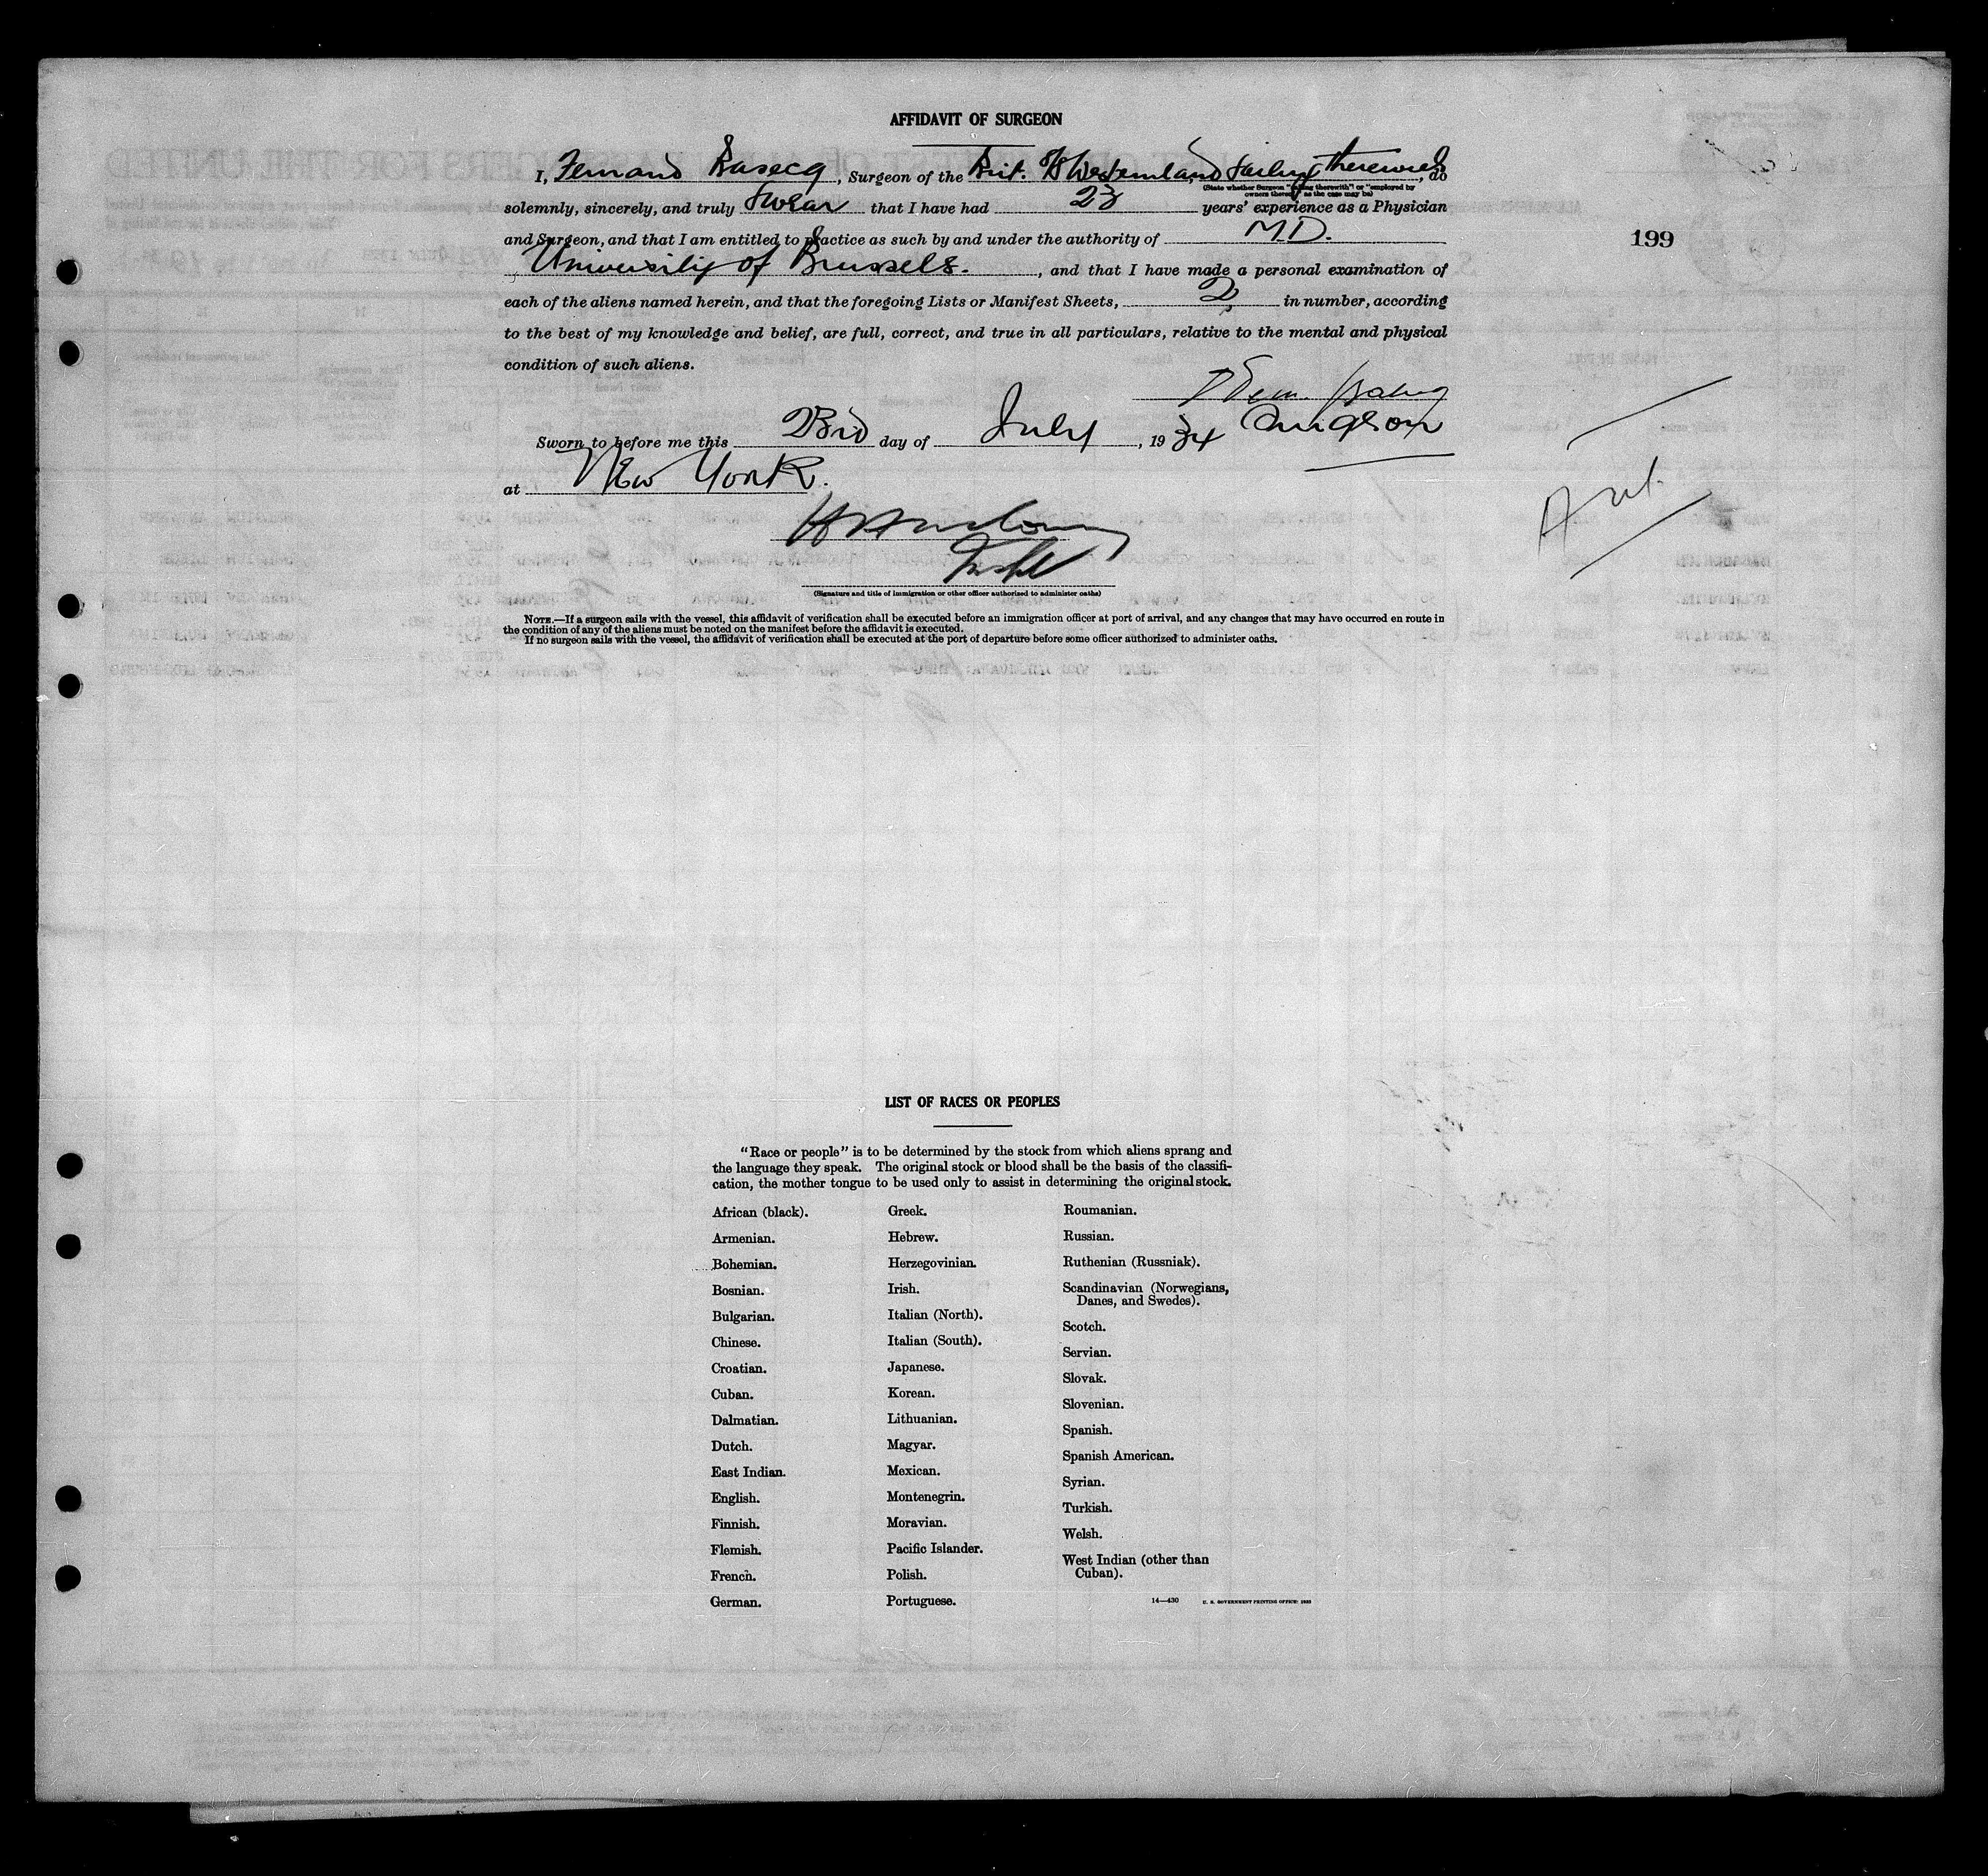 AFFIDAVIT OF SURGEON
I, Fernand Basecq, Surgeon of the Brit. S/S Westernland Sailing therewith, do
(State whether Surgeon "sailing therewith" or "employed by
owners thereof," as the case may be)
solemnly, sincerely, and truly Swear that I have had 23 years' experience as a Physician
and Surgeon, and that I am entitled to practice as such by and under the authority of M.D.
University of Brussels., and that I have made a personal examination of
each of the aliens named herein, and that the foregoing Lists or Manifest Sheets, 2 in number, according
to the best of my knowledge and belief, are full, correct, and true in all particulars, relative to the mental and physical
condition of such aliens.
Surgeon
Sworn to before me this 23rd day of July, 1934
at New York.
(Signature and title of immigration or other officer authorized to administer oaths)
NOTE.—If a surgeon sails with the vessel, this affidavit of verification shall be executed before an immigration officer at port of arrival, and any changes that may have occurred en route in
the condition of any of the aliens must be noted on the manifest before the affidavit is executed.
If no surgeon sails with the vessel, the affidavit of verification shall be executed at the port of departure before some officer authorized to administer oaths.
199
LIST OF RACES OR PEOPLES
"Race or people" is to be determined by the stock from which aliens sprang and
the language they speak. The original stock or blood shall be the basis of the classifi-
cation, the mother tongue to be used only to assist in determining the original stock.
African (black).
Armenian.
Bohemian.
Bosnian.
Bulgarian.
Chinese.
Croatian.
Cuban.
Dalmatian.
Dutch.
East Indian.
English.
Finnish.
Flemish.
French.
German.
Greek.
Hebrew.
Herzegovinian.
Irish.
Italian (North).
Italian (South).
Japanese.
Korean.
Lithuanian.
Magyar.
Mexican.
Montenegrin.
Moravian.
Pacific Islander.
Polish.
Portuguese.
Roumanian.
Russian.
Ruthenian (Russniak).
Scandinavian (Norwegians,
Danes, and Swedes).
Scotch.
Servian.
Slovak.
Slovenian.
Spanish.
Spanish American.
Syrian.
Turkish.
Welsh.
West Indian (other than
Cuban).
14—430 U. S. GOVERNMENT PRINTING OFFICE: 1933